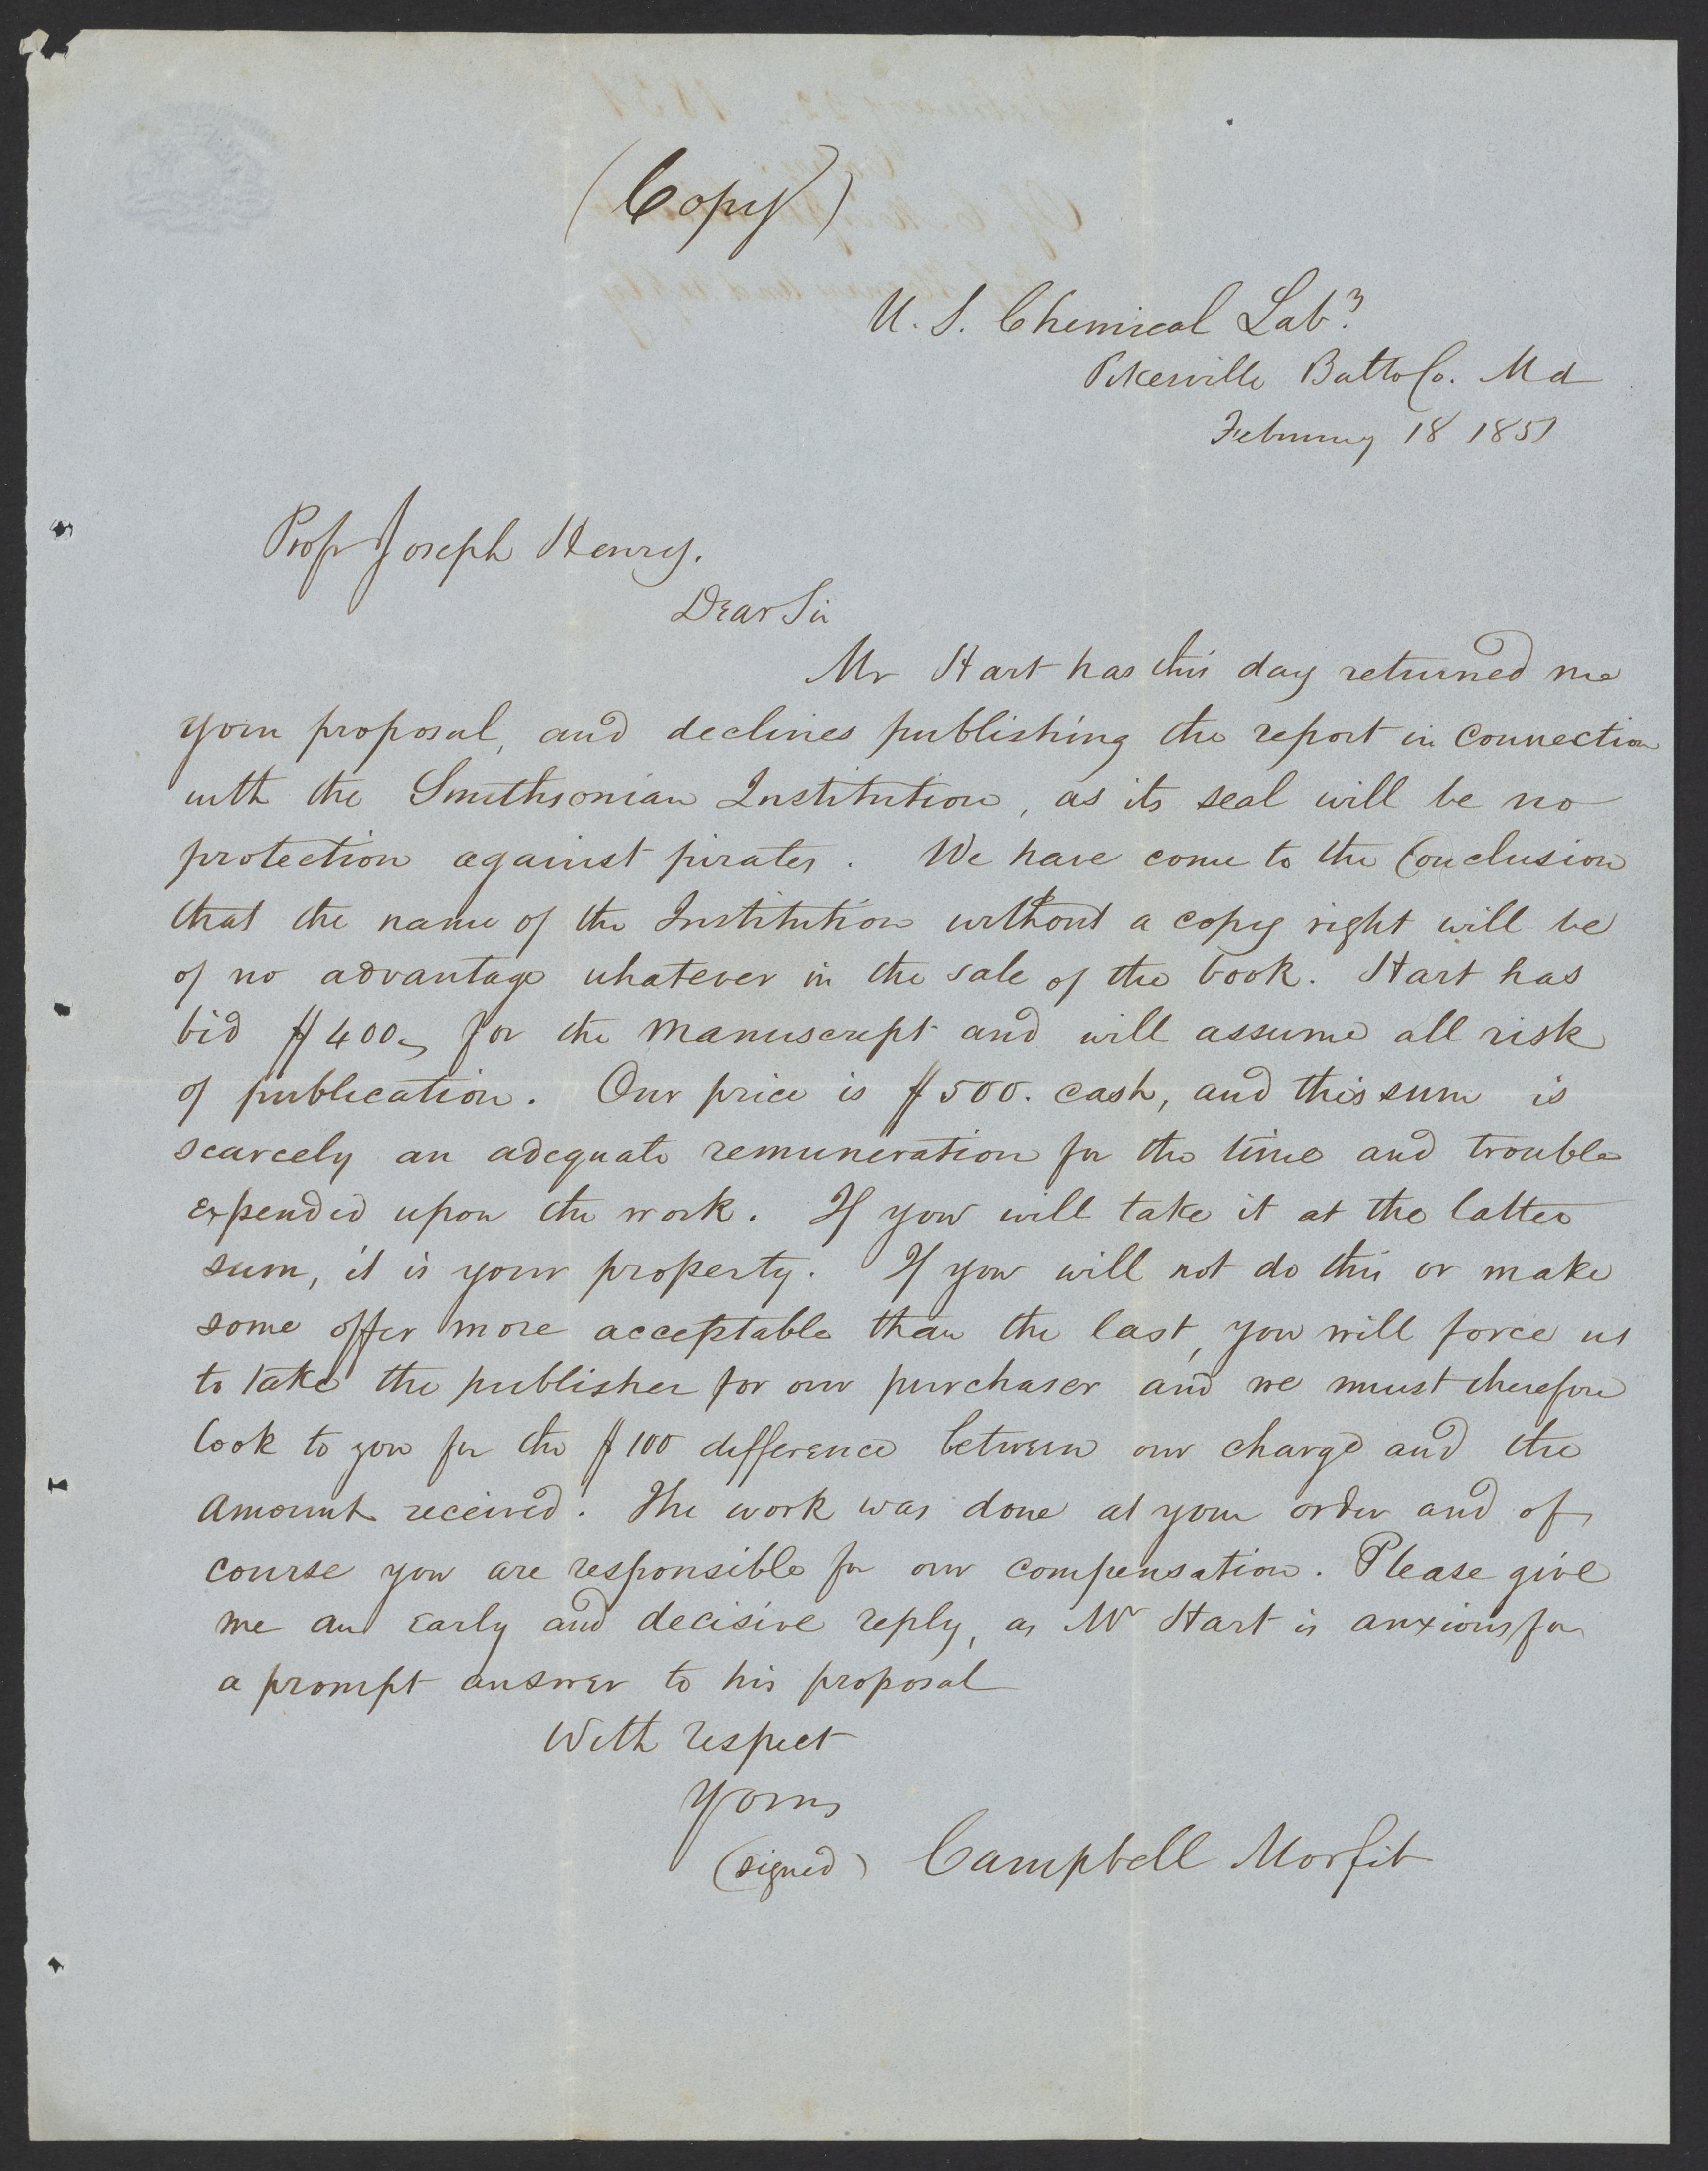 (Copy)
U. S. Chemical Laby.
Pikesville Balto Co. Md
February 18 1851
Prof Joseph Henry.
Dear Sir
Mr Hart has this day returned me
your proposal, and declines publishing the report in connection
with the Smithsonian Institution, as its seal will be no
protection against pirates. We have come to the conclusion
that the name of the Institution without a copy right will be
of no advantage whatever in the sale of the book. Hart has
bid $400, for the manuscript and will assume all risk
of publication. Our price is $500. cash, and this sum is
scarcely an adequate remuneration for the time and trouble
expended upon the work. If you will take it at the latter
sum, it is your property. If you will not do this or make
some offer more acceptable than the last, you will force us
to take the publisher for our purchaser and we must therefore
look to you for the $100 difference between our charge and the
amount received. The work was done at your order and of
course you are responsible for our compensation. Please give
me an early and decisive reply, as Mr Hart is anxious for
a prompt answer to his proposal
With respect
Yours
(signed) Campbell Morfit